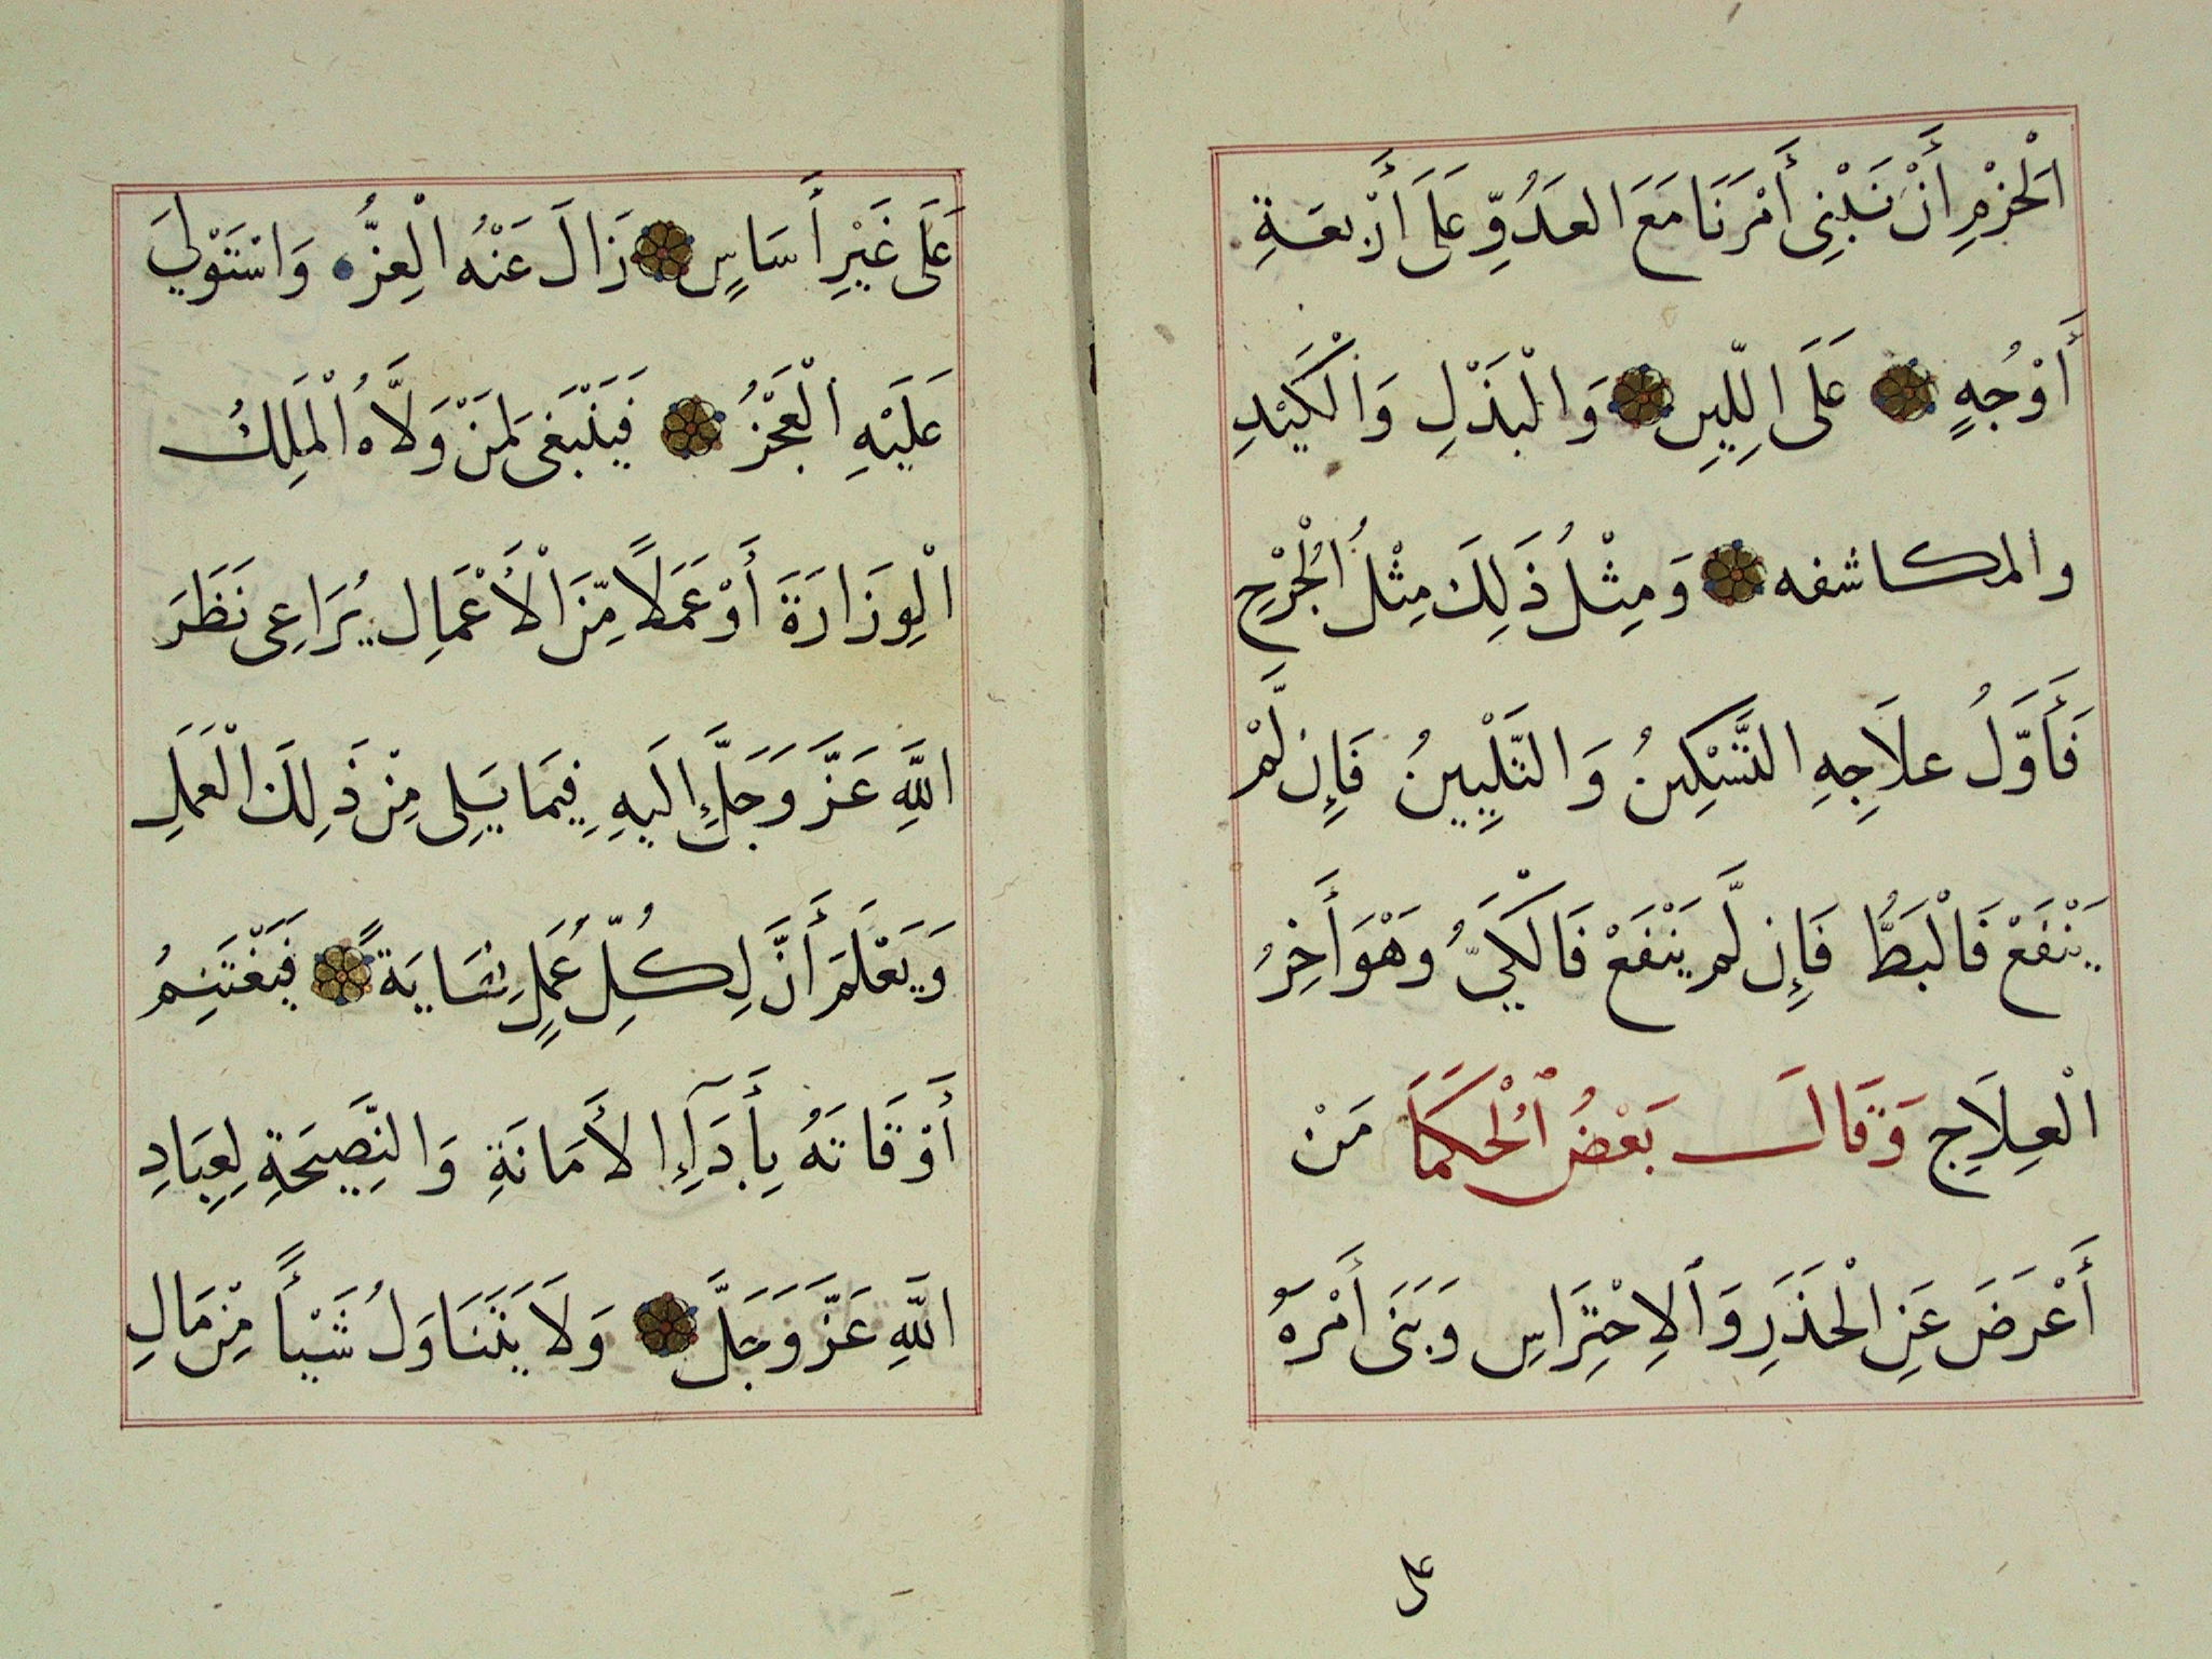 الْحَزْمِ أَنْ نَبْنِى أَمْرَنَا مَعَ العَدُوِّ عَلَى أَرْبعَةِ
أَوْجُهٍ عَلَى الِلّينِ وَالْبَذْلِ وَالْكَيْدِ
والمكاشفه وَمِثْلُ ذَلِكَ مِثْلُ الْجُرْحِ
فَأَوَّلُ علَاجِهِ التَّسْكِينُ وَالتَّلِيينُ فَإِن لَّمْ
يَنْفَعْ فَالْبَطُّ فَإِن لَّم يَنْفَعْ فَالْكَيُّ وهْوَ أَخِرُ
الْعِلَاجِ وَقَالَ بَعْضُ ٱلْحُكَمَا مَنْ
أَعْرَضَ عَنِ الْحَذَرِ وَٱلِاحْتِرَاسِ وَبَنَى أَمْرَهُ
على
عَلَى غَيْرِ أَسَاسٍ زَالَ عَنْهُ الْعِزُّ وَاسْتَوْلَي
عَلَيْهِ الْعَجْزُ فَيَنْبَغِى لِمَنْ وَلَّاهُ الْمَلِكُ
الْوِزَارَةَ أَوْ عَمَلًا مِّنَ الْأَعْمَالِ يُرَاعِى نَظَرَ
اللَّهِ عَزَّ وَجَلَّ إِلَيهِ فِيمَا يَلِى مِنْ ذَلِكَ الْعَمَلِ
وَيَعْلَمَ أَنَّ لِكُلِّ عَمَلٍ نِهَايَةً فَيَغْتَنِمُ
أَوْقَاتَهُ بِأَدَآءِ الأَمَانَةِ وَالنَّصِيحَةِ لِعِبَادِ
اللَّهِ عَزَّ وَجَلَّ وَلَا يَتَنَاوَلُ شَيْأً مِنْ مَالِ